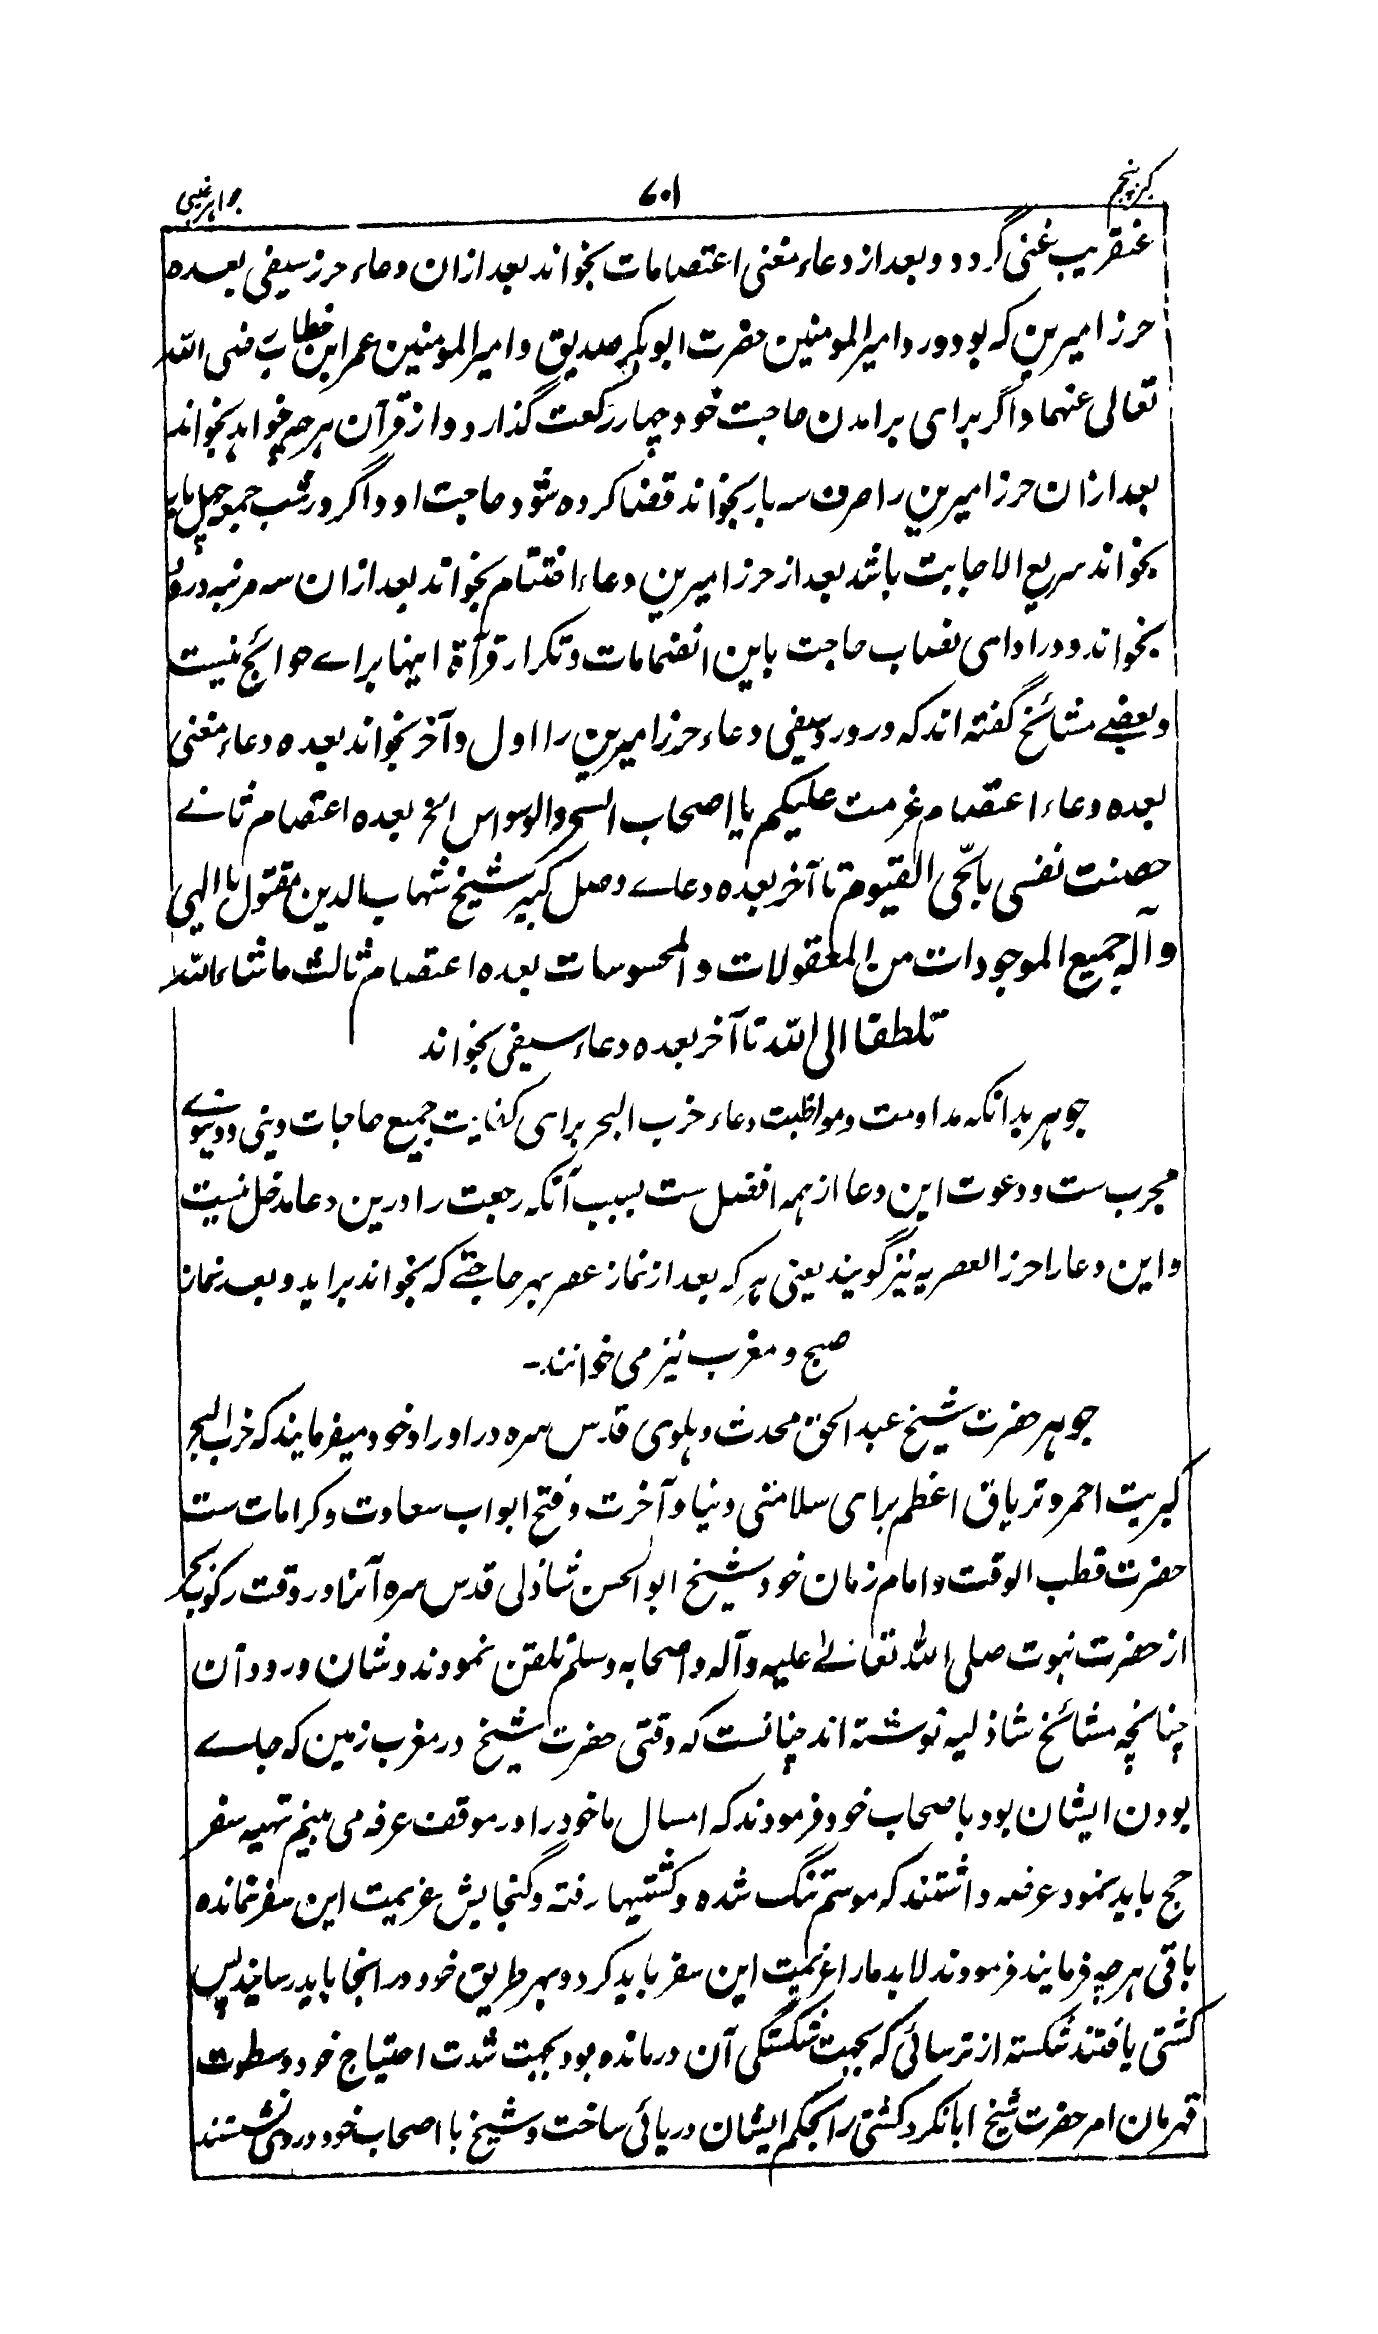 کنز پنجم ۷۰۱ جواہر غیبی
عنقریب غنی گردد و بعد از دعاء مغنی اعتصامات بخواند بعد ازان دعاء حرز سیفی بعده
حرز امیرین که بود ورد امیر المومنین حضرت ابوبکر صدیق و امیر المومنین عمر ابن خطاب رضی الله
تعالی عنهما و اگر برای برامدن حاجت خود چهار رکعت گذارد و از قرآن هر چه خواهد بخواند
بعد ازان حرز امیرین را صرف سه بار بخواند قضا کرده شود حاجت او و اگر در شب جمعه چهل بار
بخواند سریع الاجابت باشد بعد از حرز امیرین دعاء اختتام بخواند بعد ازان سه مرتبه درود
بخواند و در ادای نصاب حاجت باین انضمامات و تکرار قرآة اینها براے حوائج نیست
و بعضے مشائخ گفته اند که در ورد سیفی دعاء حرز امیرین را اول و آخر بخواند بعده دعاء مغنی
بعده دعاء اعتصام عزمت علیکم یا اصحاب السحر والوسواس الخ بعده اعتصام ثانے
حصنت نفسی بالحی القیوم تا آخر بعده دعاے وصل کبیر شیخ شهاب الدین مقتول یا الهی
و آله جمیع الموجودات من المعقولات و المحسوسات بعده اعتصام ثالث ماشاء الله
تلطفا الی الله تا آخر بعده دعاء سیفی بخواند
جوهر بدانکه مداومت و مواظبت دعاء حزب البحر برای کفایت جمیع حاجات دینی و دنیوے
مجرب ست و دعوت این دعا از همه افضل ست بسبب آنکه رجعت را درین دعا مدخل نیست
و این دعا را حرز العصریه نیز گویند یعنی هر که بعد از نماز عصر بهر حاجتے که بخواند براید و بعد نماز
صبح و مغرب نیز می خوانند۔
جوهر حضرت شیخ عبد الحق محدث دهلوی قدس سره در اوراد خود میفرمایند که حزب البحر
کبریت احمر و تریاق اعظم برای سلامتی دنیا و آخرت و فتح ابواب سعادت و کرامات ست
حضرت قطب الوقت و امام زمان خود شیخ ابو الحسن شاذلی قدس سره آنرا در وقت رکوب بحر
از حضرت نبوت صلی الله تعالے علیه و آله و اصحابه و سلم تلقن نمودند و شان ورود آن
چنانچه مشائخ شاذلیه نوشته اند چنانست که وقتی حضرت شیخ در مغرب زمین که جاے
بودن ایشان بود با صحاب خود فرمودند که امسال ما خود را در موقف عرفه می بینم تهیه سفر
حج باید نمود عرضه داشتند که موسم تنگ شده و کشتیها رفته و گنجایش عزیمت این سفر نمانده
باقی هر چه فرمایند فرمودند لابد ما را عزیمت این سفر باید کرد و بهر طریق خود در انجا باید رسانید پس
کشتی یافتند شکسته از ترسائی که بجهت شکستگی آن درمانده بود بجهت شدت احتیاج خود و سطوت
قهرمان امر حضرت شیخ ابا نکرد کشتی را بحکم ایشان دریائی ساخت و شیخ با اصحاب خود در وی نشستند